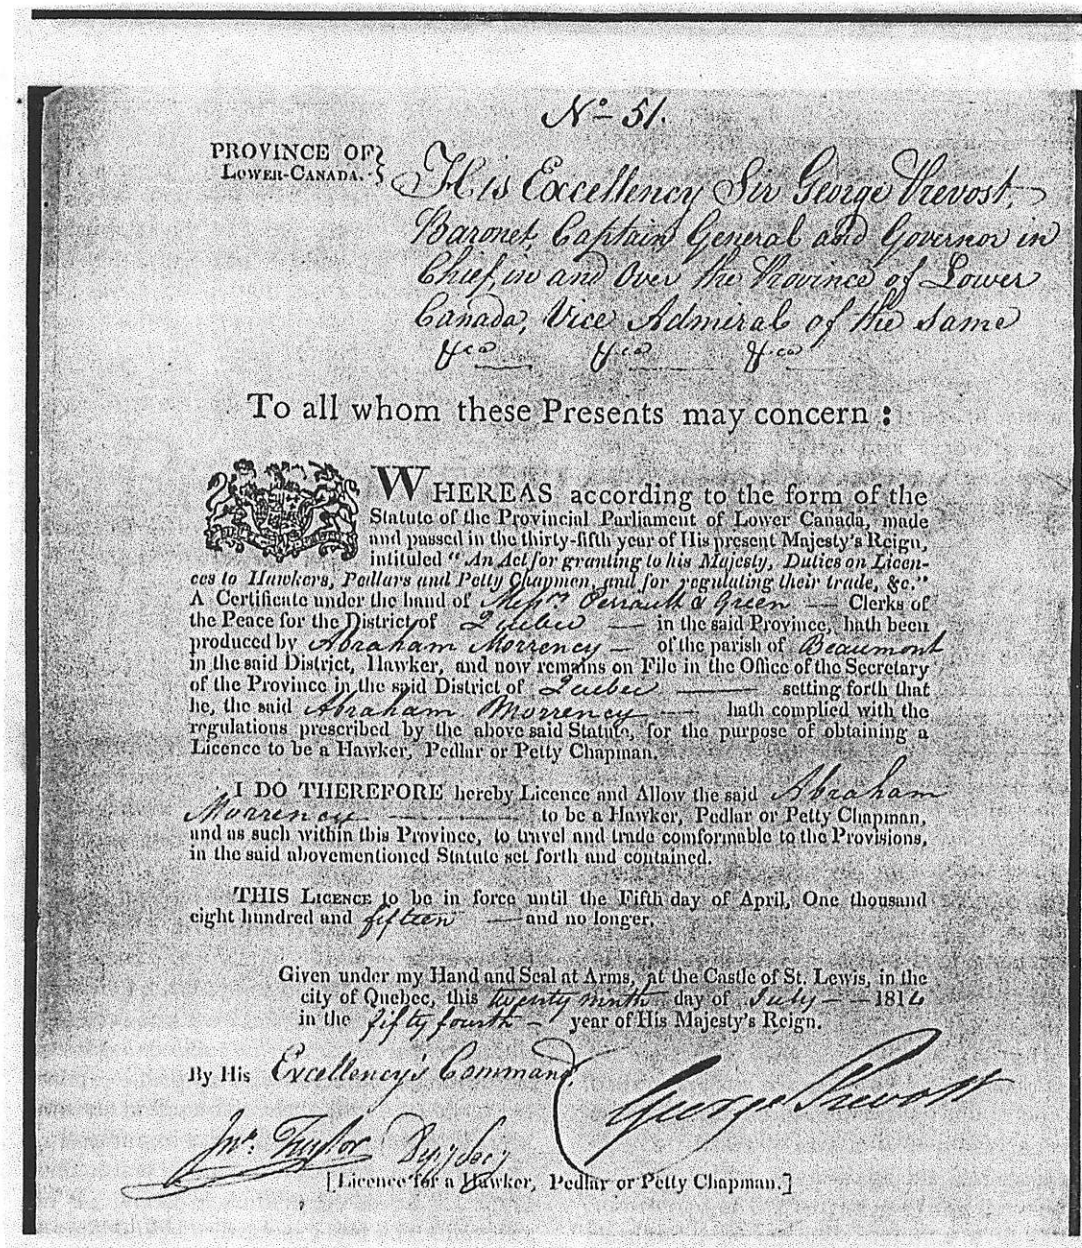 No 51.
PROVINCE OF
LOWER-CANADA.
His Excellency Sir George Prevost,
Baronet, Captain General and Governor in
Chief, in and Over the Province of Lower
Canada, Vice Admiral of the Same
&ca &ca &ca
To all whom these Presents may concern :
WHEREAS according to the form of the
Statute of the Provincial Parliament of Lower Canada, made
and passed in the thirty-fifth year of His present Majesty's Reign,
intituled "An Act for granting to his Majesty, Duties on Licen-
ces to Hawkers, Pedlars and Petty Chapmen, and for regulating their trade, &c."
A Certificate under the hand of Messrs Perrault & Green — Clerks of
the Peace for the District of Quebec — in the said Province, hath been
produced by Abraham Morrency — of the parish of Beaumont
in the said District, Hawker, and now remains on File in the Office of the Secretary
of the Province in the said District of Quebec — setting forth that
he, the said Abraham Morrency — hath complied with the
regulations prescribed by the above said Statute, for the purpose of obtaining a
Licence to be a Hawker, Pedlar or Petty Chapman.
I DO THEREFORE hereby Licence and Allow the said Abraham
Morrency — to be a Hawker, Pedlar or Petty Chapman,
and as such within this Province, to travel and trade comformable to the Provisions,
in the said abovementioned Statute set forth and contained.
THIS LICENCE to be in force until the Fifth day of April, One thousand
eight hundred and fifteen — and no longer.
Given under my Hand and Seal at Arms, at the Castle of St. Lewis, in the
city of Quebec, this twenty ninth day of July — 1814
in the fifty fourth — year of His Majesty's Reign.
By His Excellency's Command.
George Prevost
Jno. Taylor Depy Secy
[Licence for a Hawker, Pedlar or Petty Chapman.]